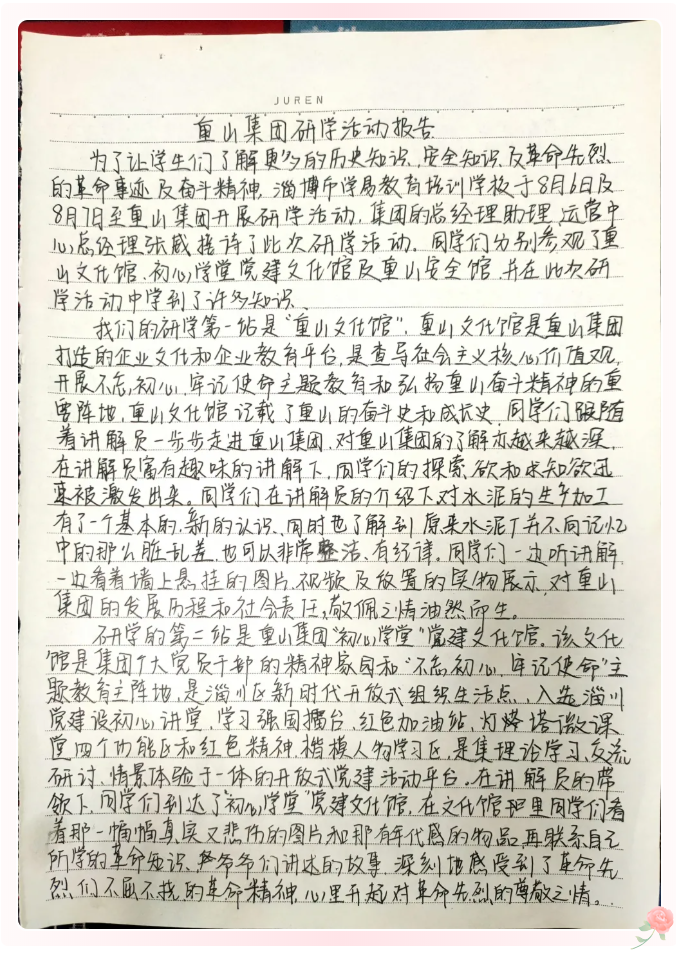 JUREN
重山集团研学活动报告
为了让学生们了解更多的历史知识、安全知识及革命先烈
的革命事迹及奋斗精神,淄博市学易教育培训学校于8月6日及
8月7日至重山集团开展研学活动,集团的总经理助理、运营中
心总经理张威接待了此次研学活动。同学们分别参观了重
山文化馆、初心学堂党建文化馆及重山安全馆,并在此次研
学活动中学到了许多知识。
我们的研学第一站是“重山文化馆”,重山文化馆是重山集团
打造的企业文化和企业教育平台,是查导社会主义核心价值观,
开展不忘初心、牢记使命主题教育和弘扬重山奋斗精神的重
要阵地,重山文化馆记载了重山的奋斗史和成长史,同学们跟随
着讲解员一步步走进重山集团,对重山集团的了解亦越来越深,
在讲解员富有趣味的讲解下,同学们的探索欲和求知欲迅
速被激发出来。同学们在讲解员的介绍下对水泥的生产加工
有了一个基本的、新的认识,同时也了解到原来水泥厂并不同记忆
中的那么脏乱差,也可以非常整洁、有纪律。同学们一边听讲解,
一边看着墙上悬挂的图片、视频及放置的实物展示,对重山
集团的发展历程和社会责任,敬佩之情油然而生。
研学的第二站是重山集团“初心学堂”党建文化馆。该文化
馆是集团广大党员干部的精神家园和“不忘初心、牢记使命”主
题教育主阵地,是淄川区新时代开放式组织生活点、入选淄川
党建设初心讲堂、学习强国擂台、红色加油站、灯塔微课
堂四个功能区和红色精神、楷模人物学习区,是集理论学习、交流
研讨、情景体验于一体的开放式党建活动平台。在讲解员的带
领下,同学们到达了“初心学堂”党建文化馆,在文化馆里同学们看
着那一幅幅真实又悲伤的图片和那有年代感的物品,再联系自己
所学的革命知识、爷爷们讲述的故事,深刻地感受到了革命先
烈们不屈不挠的革命精神,心里升起对革命先烈的尊敬之情。